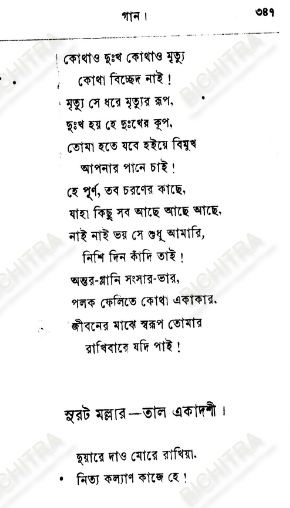 গান।
৩৪৭
কোথাও দুঃখ কোথাও মৃত্যু
কোথা বিচ্ছেদ নাই!
মৃত্যু সে ধরে মৃত্যুর রূপ,
দুঃখ হয় হে দুঃখের কূপ,
তোমা হতে যবে হইয়ে বিমুখ
আপনার পানে চাই!
হে পূর্ণ, তব চরণের কাছে,
যাহা কিছু সব আছে আছে আছে,
নাই নাই ভয় সে শুধু আমারি,
নিশি দিন কাঁদি তাই!
অন্তর-গ্লানি সংসার-ভার,
পলক ফেলিতে কোথা একাকার,
জীবনের মাঝে স্বরূপ তোমার
রাখিবারে যদি পাই!
সুরট মল্লার—তাল একাদশী।
দুয়ারে দাও মোরে রাখিয়া
নিত্য কল্যাণ কাজে হে!
BICHITRA